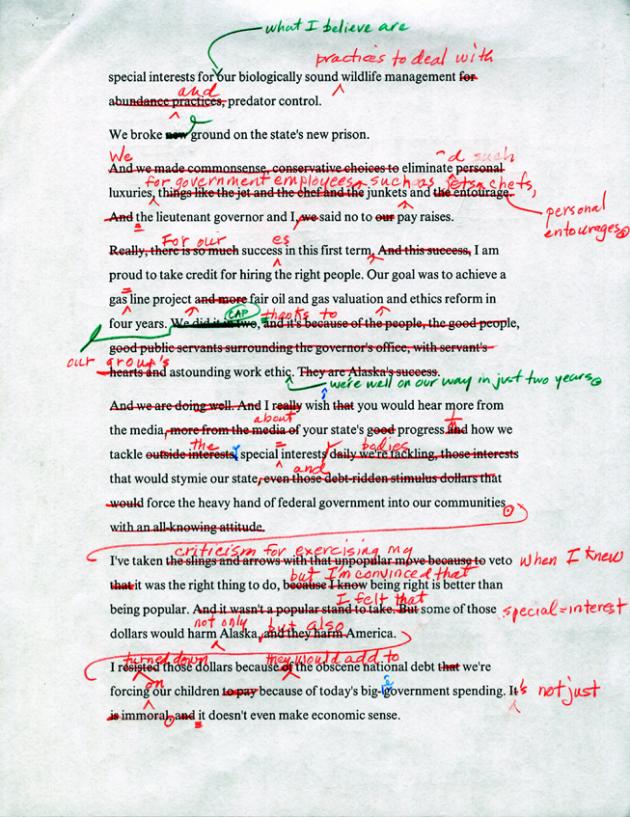 what I believe are
practices to deal with
special interests for our biologically sound wildlife management for
and
abundance practices, predator control.
We broke new ground on the state's new prison.
We d such
And we made commonsense, conservative choices to eliminate personal
for government employees such as jets, chefs,
luxuries, things like the jet and the chef and the junkets and the entourage.
And the lieutenant governor and I, we said no to our pay raises.
personal
entourages
For our es
Really, there is so much success in this first term. And this success, I am
proud to take credit for hiring the right people. Our goal was to achieve a
gas line project and more fair oil and gas valuation and ethics reform in
CAP thanks to
four years. We did it in two, and it's because of the people, the good people,
good public servants surrounding the governor's office, with servant's
our group's
hearts and astounding work ethic. They are Alaska's success.
we're well on our way in just two years
And we are doing well. And I really wish that you would hear more from
about
the media, more from the media of your state's good progress and how we
the bodies
tackle outside interests special interests daily we're tackling, those interests
and
that would stymie our state, even those debt-ridden stimulus dollars that
would force the heavy hand of federal government into our communities
with an all-knowing attitude.
criticism for exercising my
I've taken the slings and arrows with that unpopular move because to veto when I knew
but I'm convinced that
that it was the right thing to do, because I know being right is better than
I felt that
being popular. And it wasn't a popular stand to take. But some of those special=interest
not only but also
dollars would harm Alaska, and they harm America.
turned down they would add to
I resisted those dollars because of the obscene national debt that we're
on
forcing our children to pay because of today's big-government spending. It's not just
is immoral, and it doesn't even make economic sense.